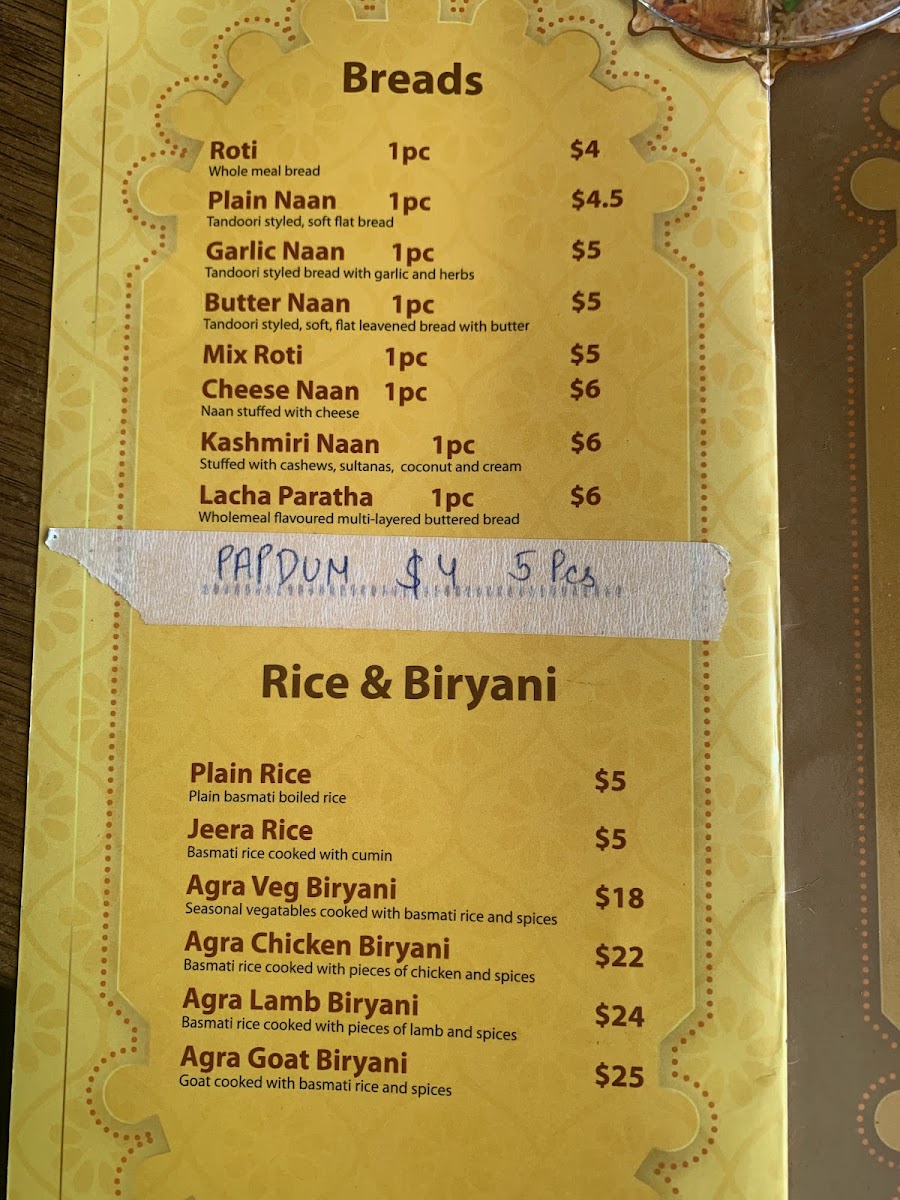 Breads
Roti 1pc $4
Whole meal bread
Plain Naan 1pc $4.5
Tandoori styled, soft flat bread
Garlic Naan 1pc $5
Tandoori styled bread with garlic and herbs
Butter Naan 1pc $5
Tandoori styled, soft, flat leavened bread with butter
Mix Roti 1pc $5
Cheese Naan 1pc $6
Naan stuffed with cheese
Kashmiri Naan 1pc $6
Stuffed with cashews, sultanas, coconut and cream
Lacha Paratha 1pc $6
Wholemeal flavoured multi-layered buttered bread
PAPDUM $4 5 Pcs
Rice & Biryani
Plain Rice $5
Plain basmati boiled rice
Jeera Rice $5
Basmati rice cooked with cumin
Agra Veg Biryani $18
Seasonal vegatables cooked with basmati rice and spices
Agra Chicken Biryani $22
Basmati rice cooked with pieces of chicken and spices
Agra Lamb Biryani $24
Basmati rice cooked with pieces of lamb and spices
Agra Goat Biryani $25
Goat cooked with basmati rice and spices